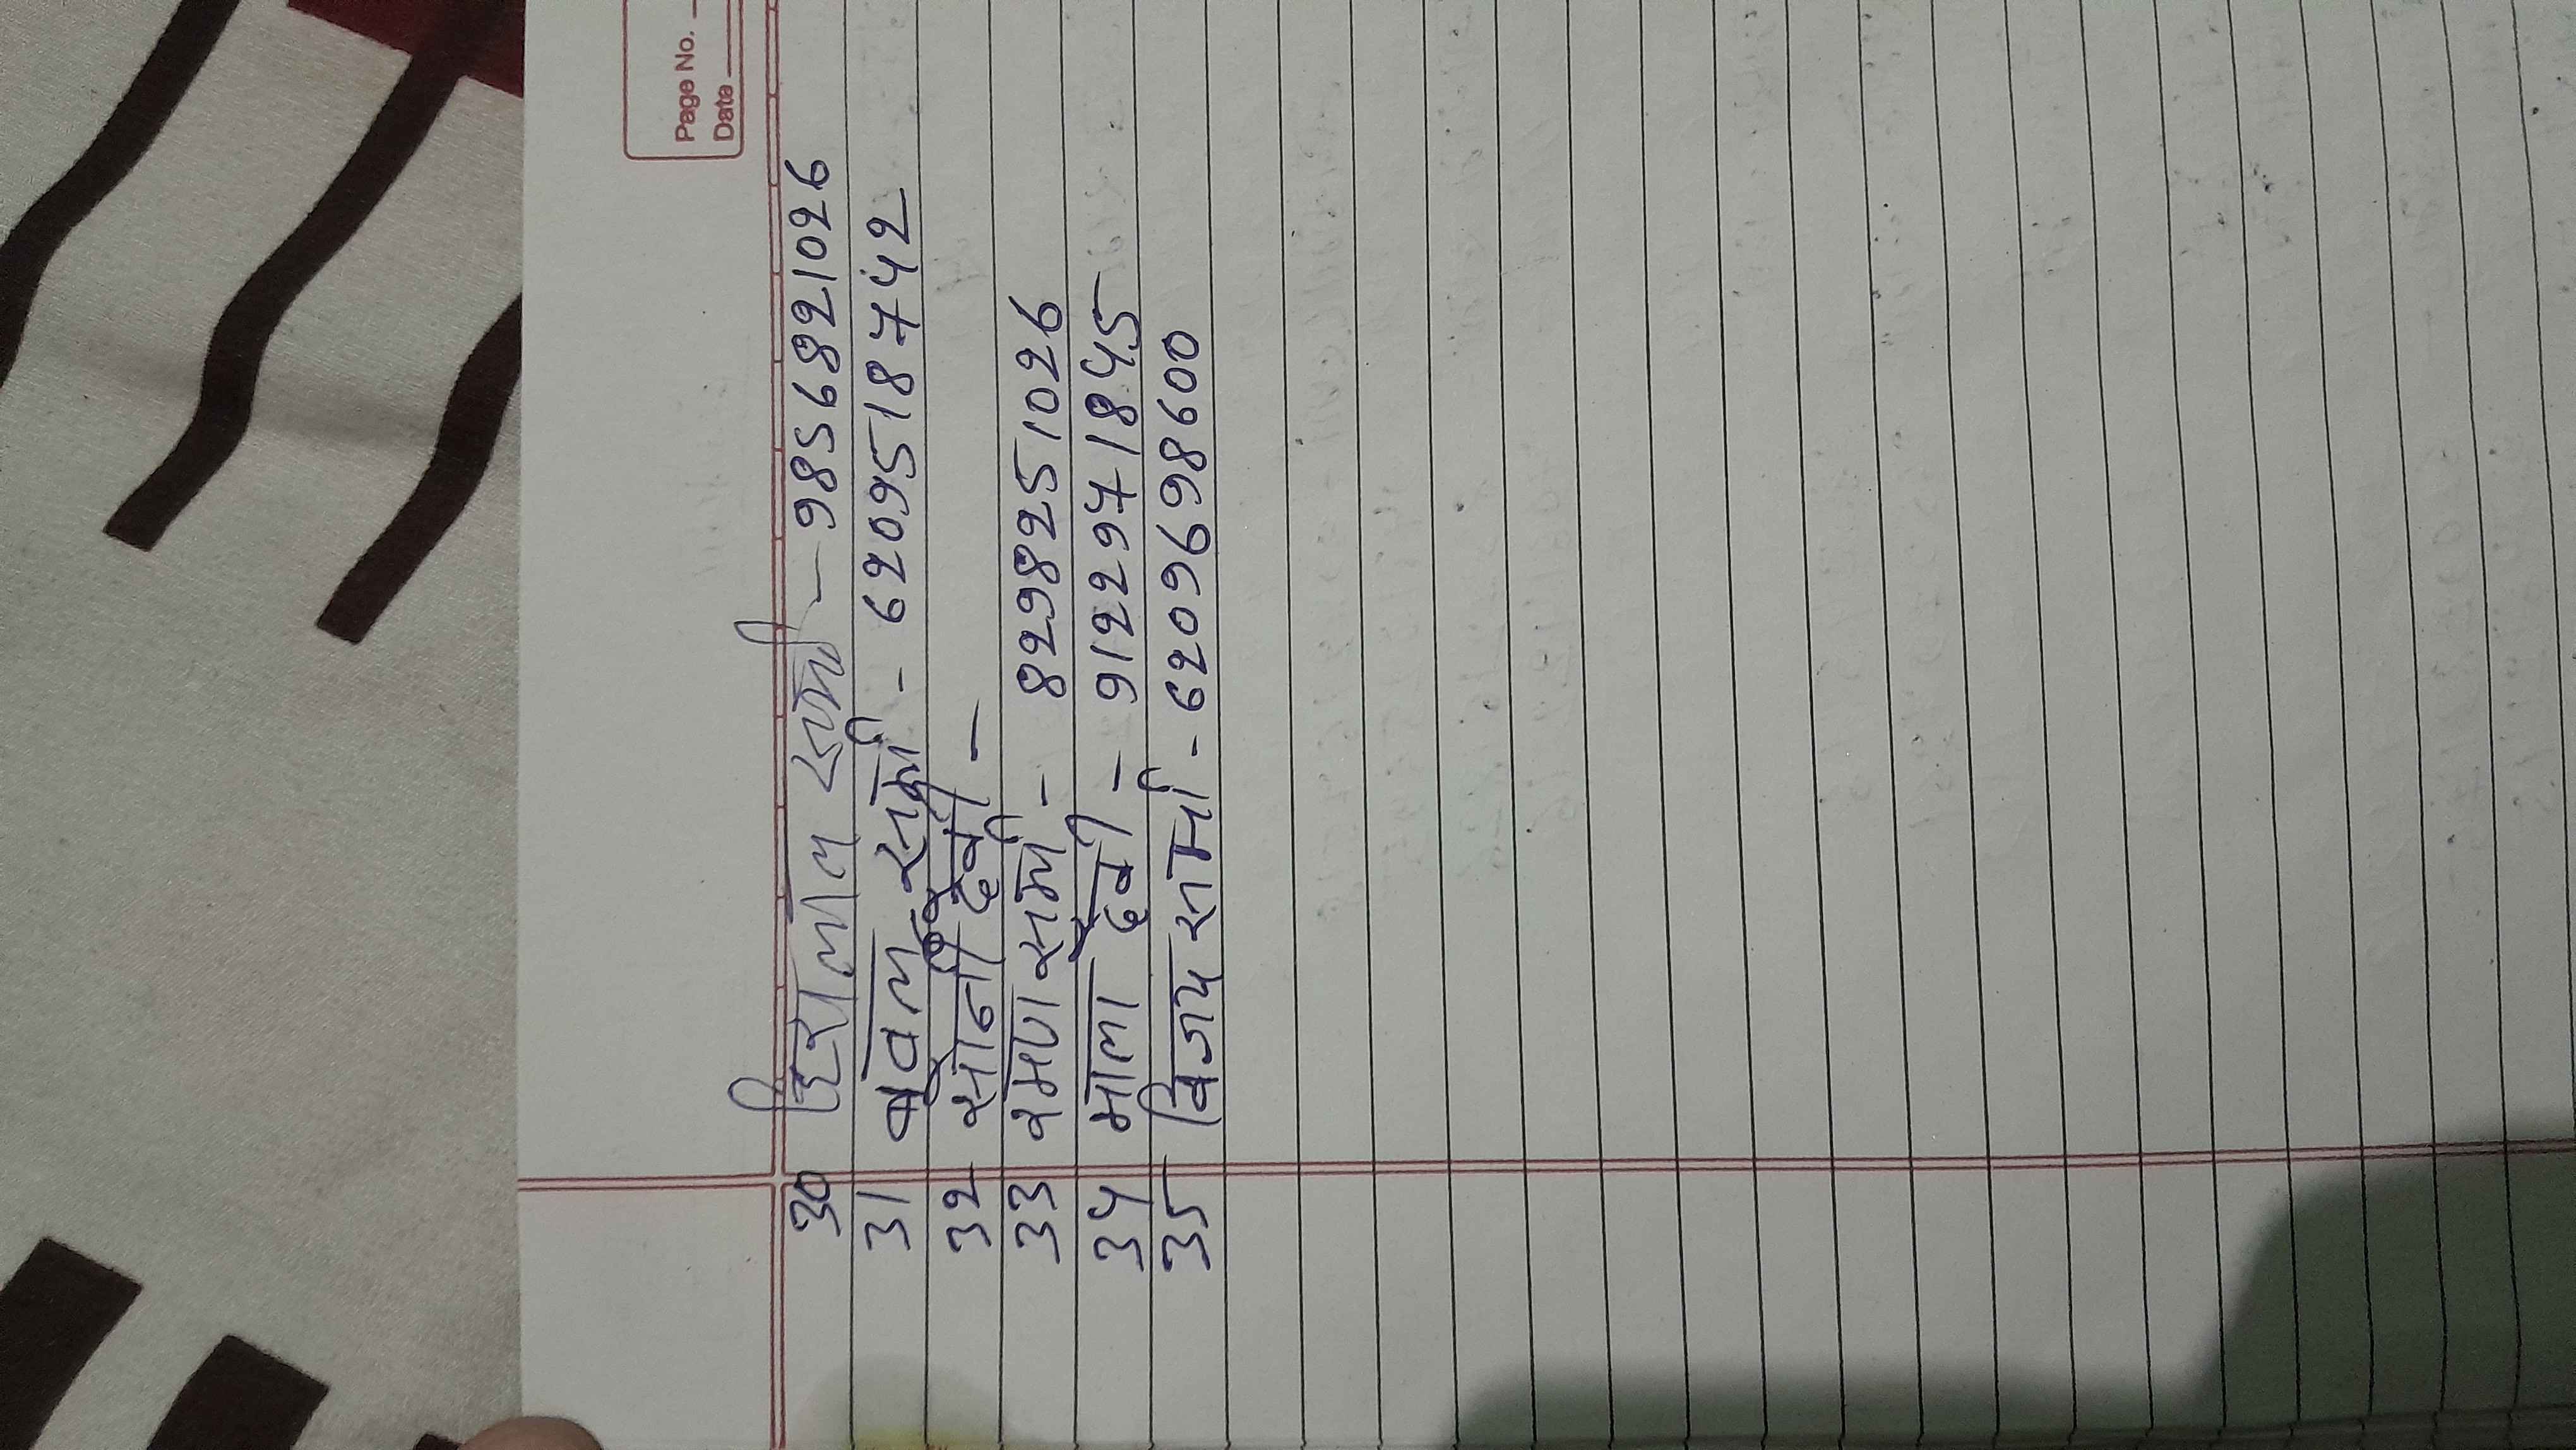 Page No.
Date
30 हिरालाल शर्मा - 9856821026
31 बुवल शर्मा - 6209518742
32 सोनी देवी -
33 शर्मा - 8298251026
34 माला देवी - 9122971845
35 विजय शर्मा - 6209698600